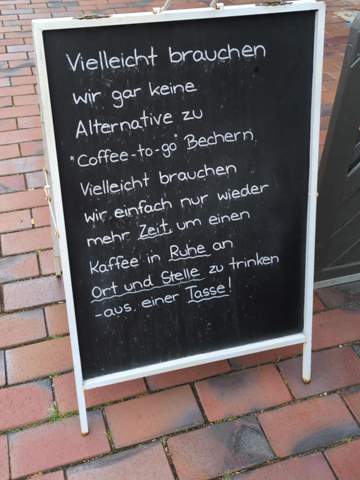 Vielleicht brauchen
wir gar keine
Alternative zu
"Coffee-to-go" Bechern,
Vielleicht brauchen
wir einfach nur wieder
mehr Zeit, um einen
Kaffee in Ruhe an
Ort und Stelle zu trinken
-aus einer Tasse!